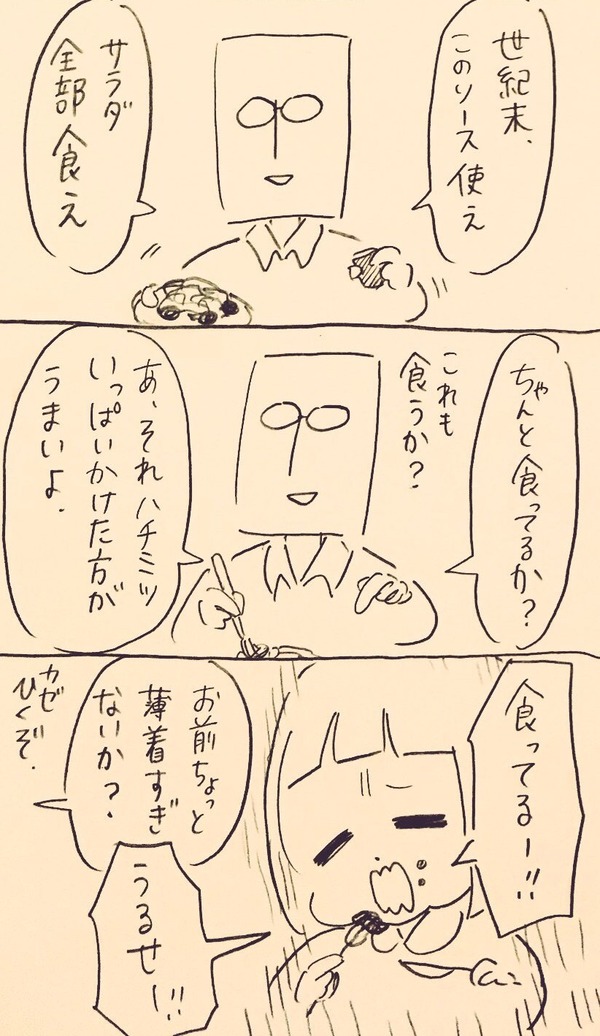 世紀末、
このソース使え
サラダ
全部食え
ちゃんと食ってるか?
これも
食うか?
あ、それハチミツ
いっぱいかけた方が
うまいよ.
食ってるー!!
お前ちょっと
薄着すぎ
ないか?
カゼ
ひくぞ.
うるせー!!